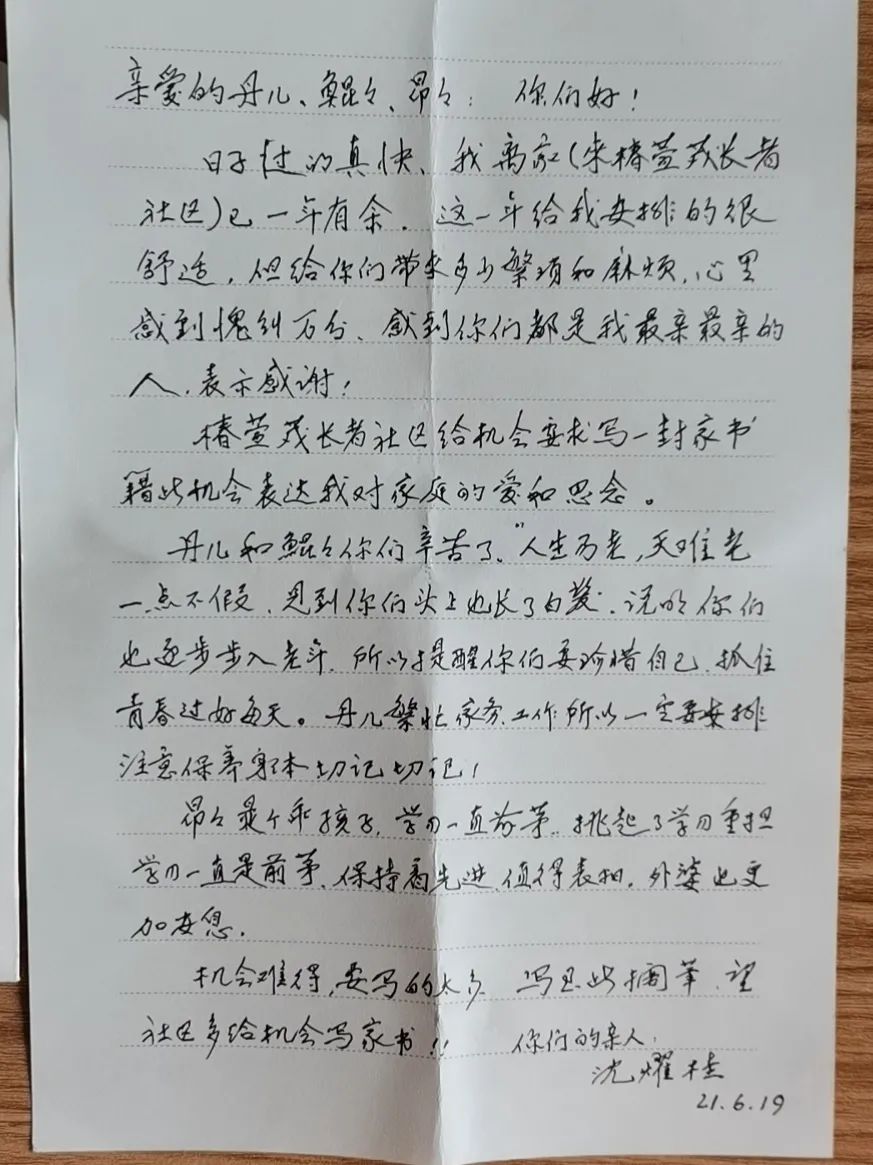 亲爱的丹儿、鲲々、昂々：你们好！
日子过的真快、我离家(来椿萱茂长者
社区)已一年有余．这一年给我安排的很
舒适，但给你们带来多少繁琐和麻烦，心里
感到愧纠万分、感到你们都是我最亲最亲的
人，表示感谢！
椿萱茂长者社区给机会要求写一封家书
籍此机会表达我对家庭的爱和思念。
丹儿和鲲々你们辛苦了、"人生易老，天难老
一点不假，见到你们头上也长了白发、说明你们
也逐步步入老年，所以提醒你们要珍惜自己、抓住
青春过好每天。丹儿繁忙家务、工作所以一定要安排
注意保养身体切记切记！
昂々是个乖孩子，学习一直前茅．挑起了学习重担
学习一直是前茅、保持着先进，值得表扬．外婆也更
加安息．
机会难得，要写的太多、写至此搁笔、望
社区多给机会写家书！！ 你们的亲人：
沈耀桂
21.6.19